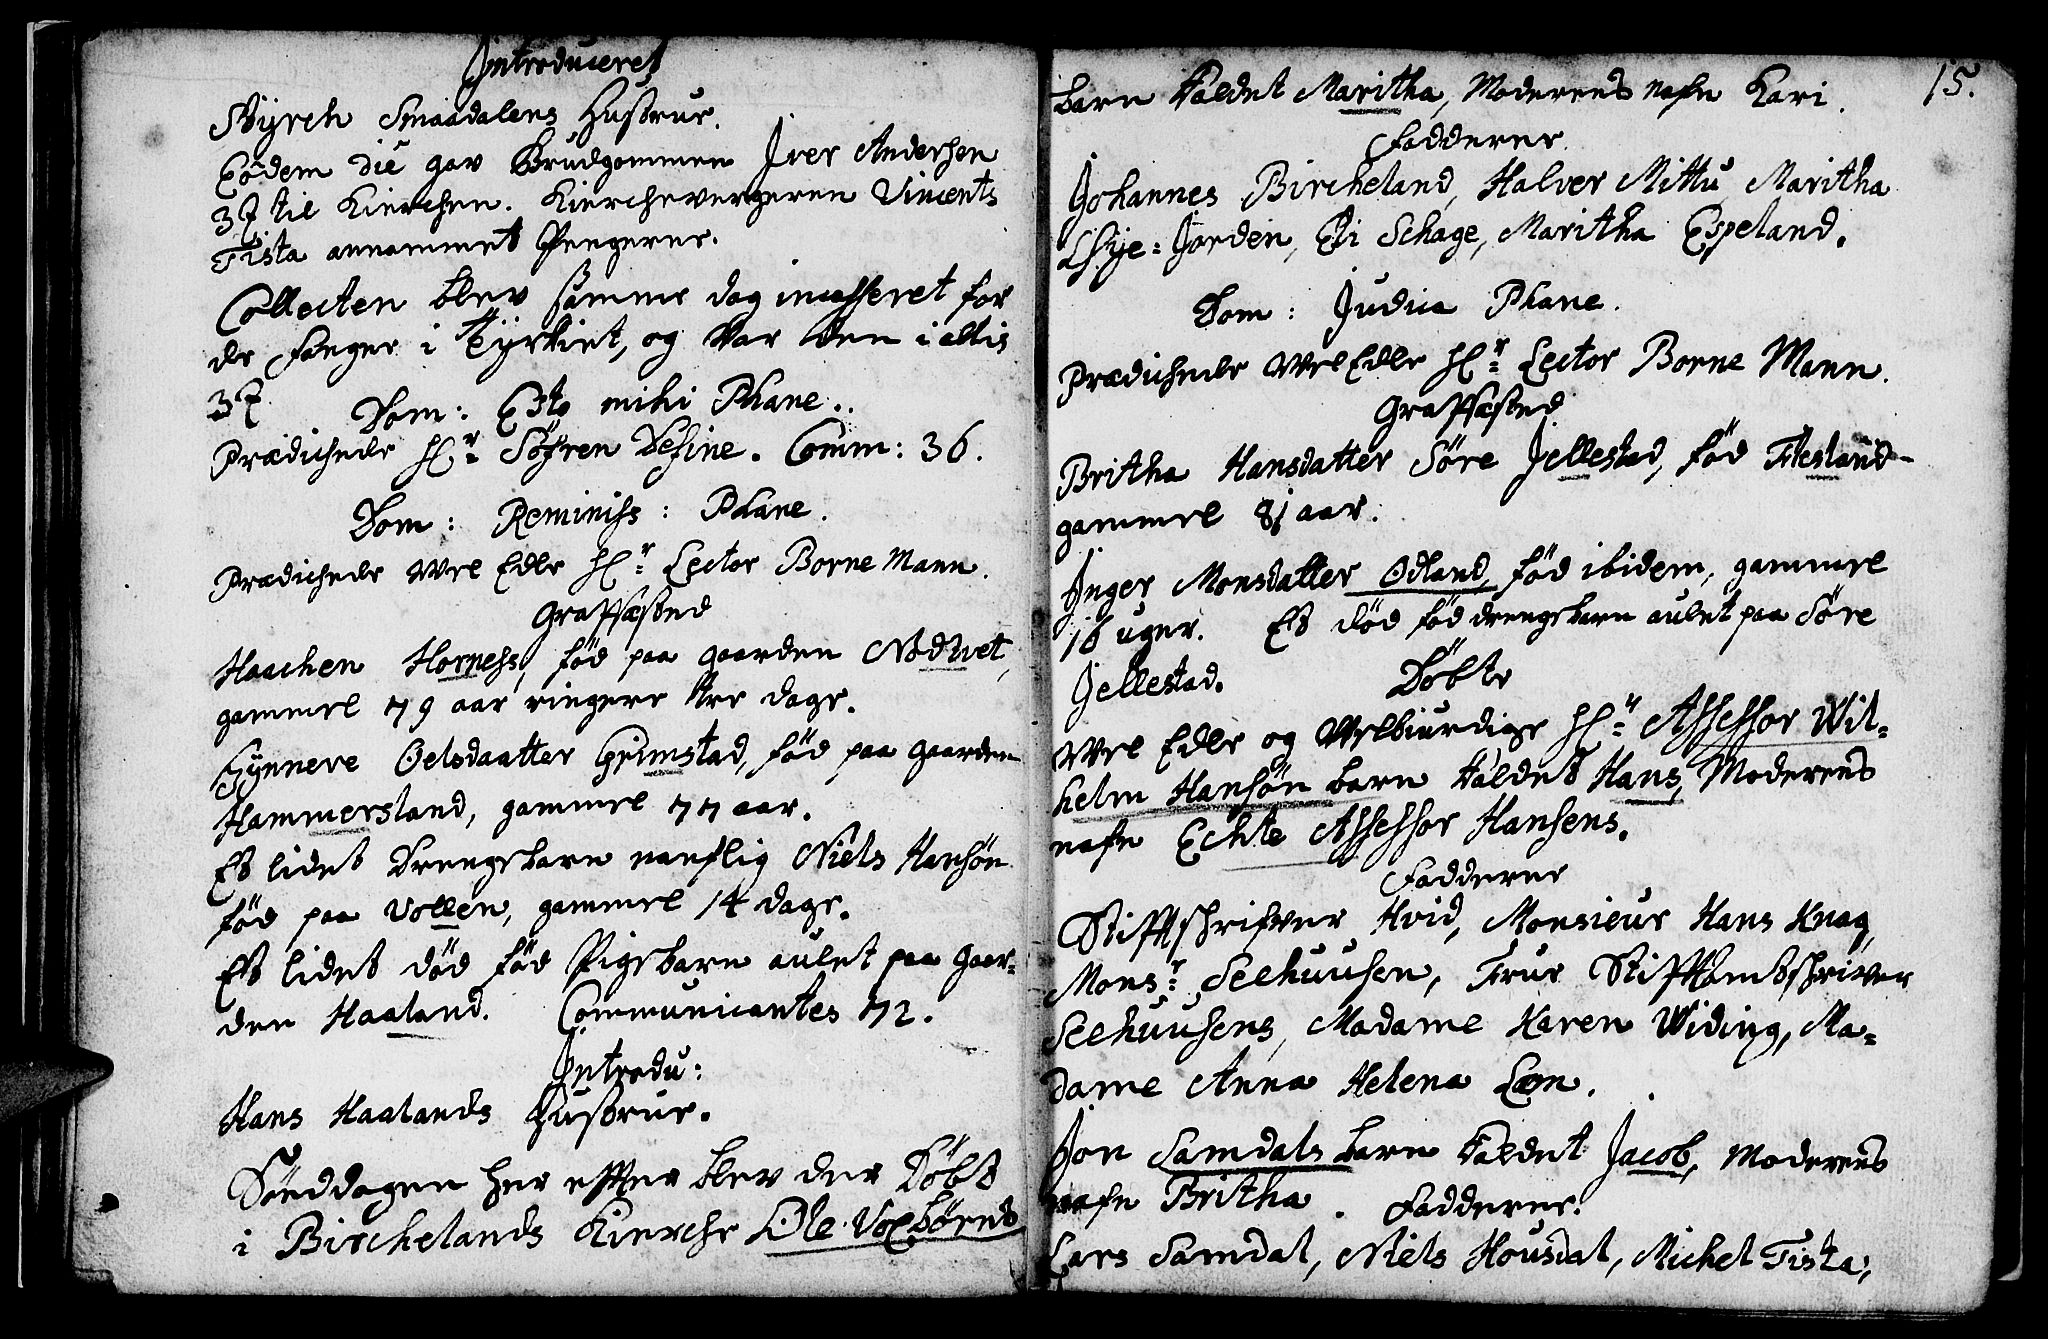 Introduceret
Styrch Smaadalens Hustrue.
Eodem die gav Brudgommen Iver Andersen
3 ꝸ til Kierchen. Kierchevergeren Vincents
Tista annammet Pengerne.
Collecten blev samme dag incasseret for
de fanger i Tyrkiet, og Var den i alt is
3 ꝸ
Dom: Esto mihi Phane.
Prædichede Hr Søfren Define. Comm: 36.
Dom: Reminiss: Phane.
Prædichede Wel Edle Hr Lector Borne Mann.
Graffæsted
Haachen Horness, fød paa gaarden Nødtvet,
gammel 79 aar ringere tre dage.
Synneve Oelsdaatter Grimstad, fød paa gaarden
Hammersland, gammel 77 aar.
Et lidet Drengebarn nanflig Niels Hansøn
fød paa Vollen, gammel 14 dage.
Et lidet død fød Pigebarn aulet paa gaar-
den Haaland. Communicantes 72.
Introdu:
Hans Haalands Hustrue.
Sønddagen her effter blev der Døbt
i Birchelands Kierche Ole Voxbørns
15.
barn Kaldet Maritha, Moderens nafn Kari.
Fadderne
Johannes Bircheland, Halver Mittu Maritha
Jorden, Eli Schage, Maritha Espeland.
Dom: Judica Phane.
Prædichede Wel Edle Hr Lector Borne Mann.
Graffæsted
Britha Hansdatter Søre Jellestad, fød Flesland
gammel 81 aar.
Inger Monsdatter Odland, fød ibidem, gammel
16 uger. Et død fød drengebarn aulet paa Søre
Jellestad. Døbte
Wel Edle og Velbiurdige Hr Assessor Wil-
helm Hansøn barn Kaldet Hans, Moderens
nafn Echte Assessor Hansens.
Fadderne
Stifftschrifver Hvid, Monsieur Hans Knag,
Monsr Seehuusen, Frue Stifftamtschriver
Seehuusens, Madame Karen Widing, Ma-
dame Anna Helena Læn.
Jon Samdals barn Kaldet Jacob, Moderens
nafn Britha. Fadderne.
Lars Samdal, Niels Housdal, Michel Tista,